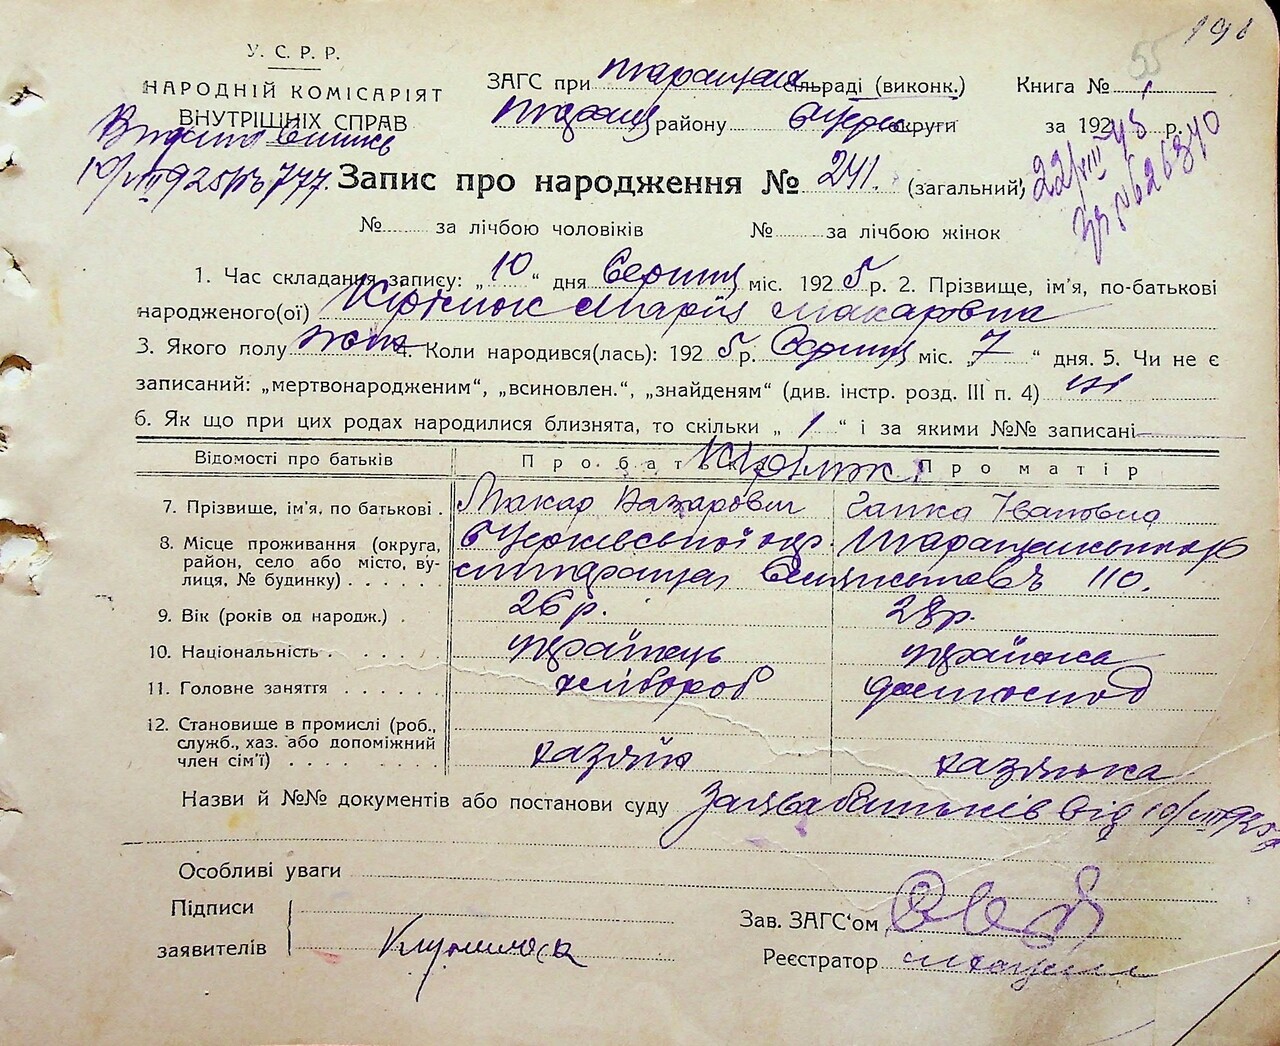 191
55
У. С. Р. Р.
НАРОДНІЙ КОМІСАРІЯТ
ВНУТРІШНІХ СПРАВ
ЗАГС при сільраді (виконк.)
району округи
Книга № 1
за 1925 р.
10/VIII 925р № 777.
Запис про народження № 241. (загальний)
№ за лічбою чоловіків № за лічбою жінок
1. Час складання запису: „10“ дня Серпня міс. 1925 р. 2. Прізвище, ім'я, по-батькові
народженого(ої) Марія Макаровна
3. Якого полу жін 4. Коли народився(лась): 1925 р. Серпня міс. „7“ дня. 5. Чи не є
записаний: „мертвонародженим“, „всиновлен.“, „знайденям“ (див. інстр. розд. III п. 4) ні
6. Як що при цих родах народилися близнята, то скільки „1“ і за якими №№ записані
Відомості про батьків Про батька Про матір
7. Прізвище, ім'я, по батькові . Макар Назарович Ганка Івановна
8. Місце проживання (округа, район, село або місто, вулиця, № будинку) . . . . . Б Церківської окр. Таращанського р
110.
9. Вік (років од народж.) . 26 р. 28 р.
10. Національність . . . . . українець українка
11. Головне заняття . . . . . . хлібороб домгоспод
12. Становище в промислі (роб., служб., хаз. або допоміжний член сім'ї) . . . . . . . . хазяїн хазяйка
Назви й №№ документів або постанови суду Заява батьків від 10/VIII 925р
Особливі уваги
Підписи
заявителів
Зав. ЗАГС'ом
Реєстратор